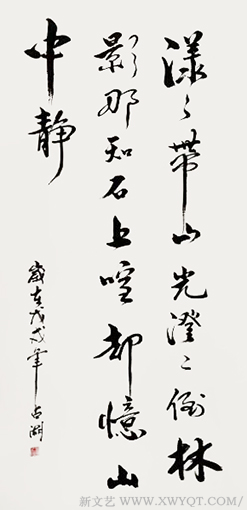 漾漾带山光澄澄倒林
影那知石上喧却忆山
中静
岁在戊戌年占湖
新文艺/WWW.XWYQT.COM/